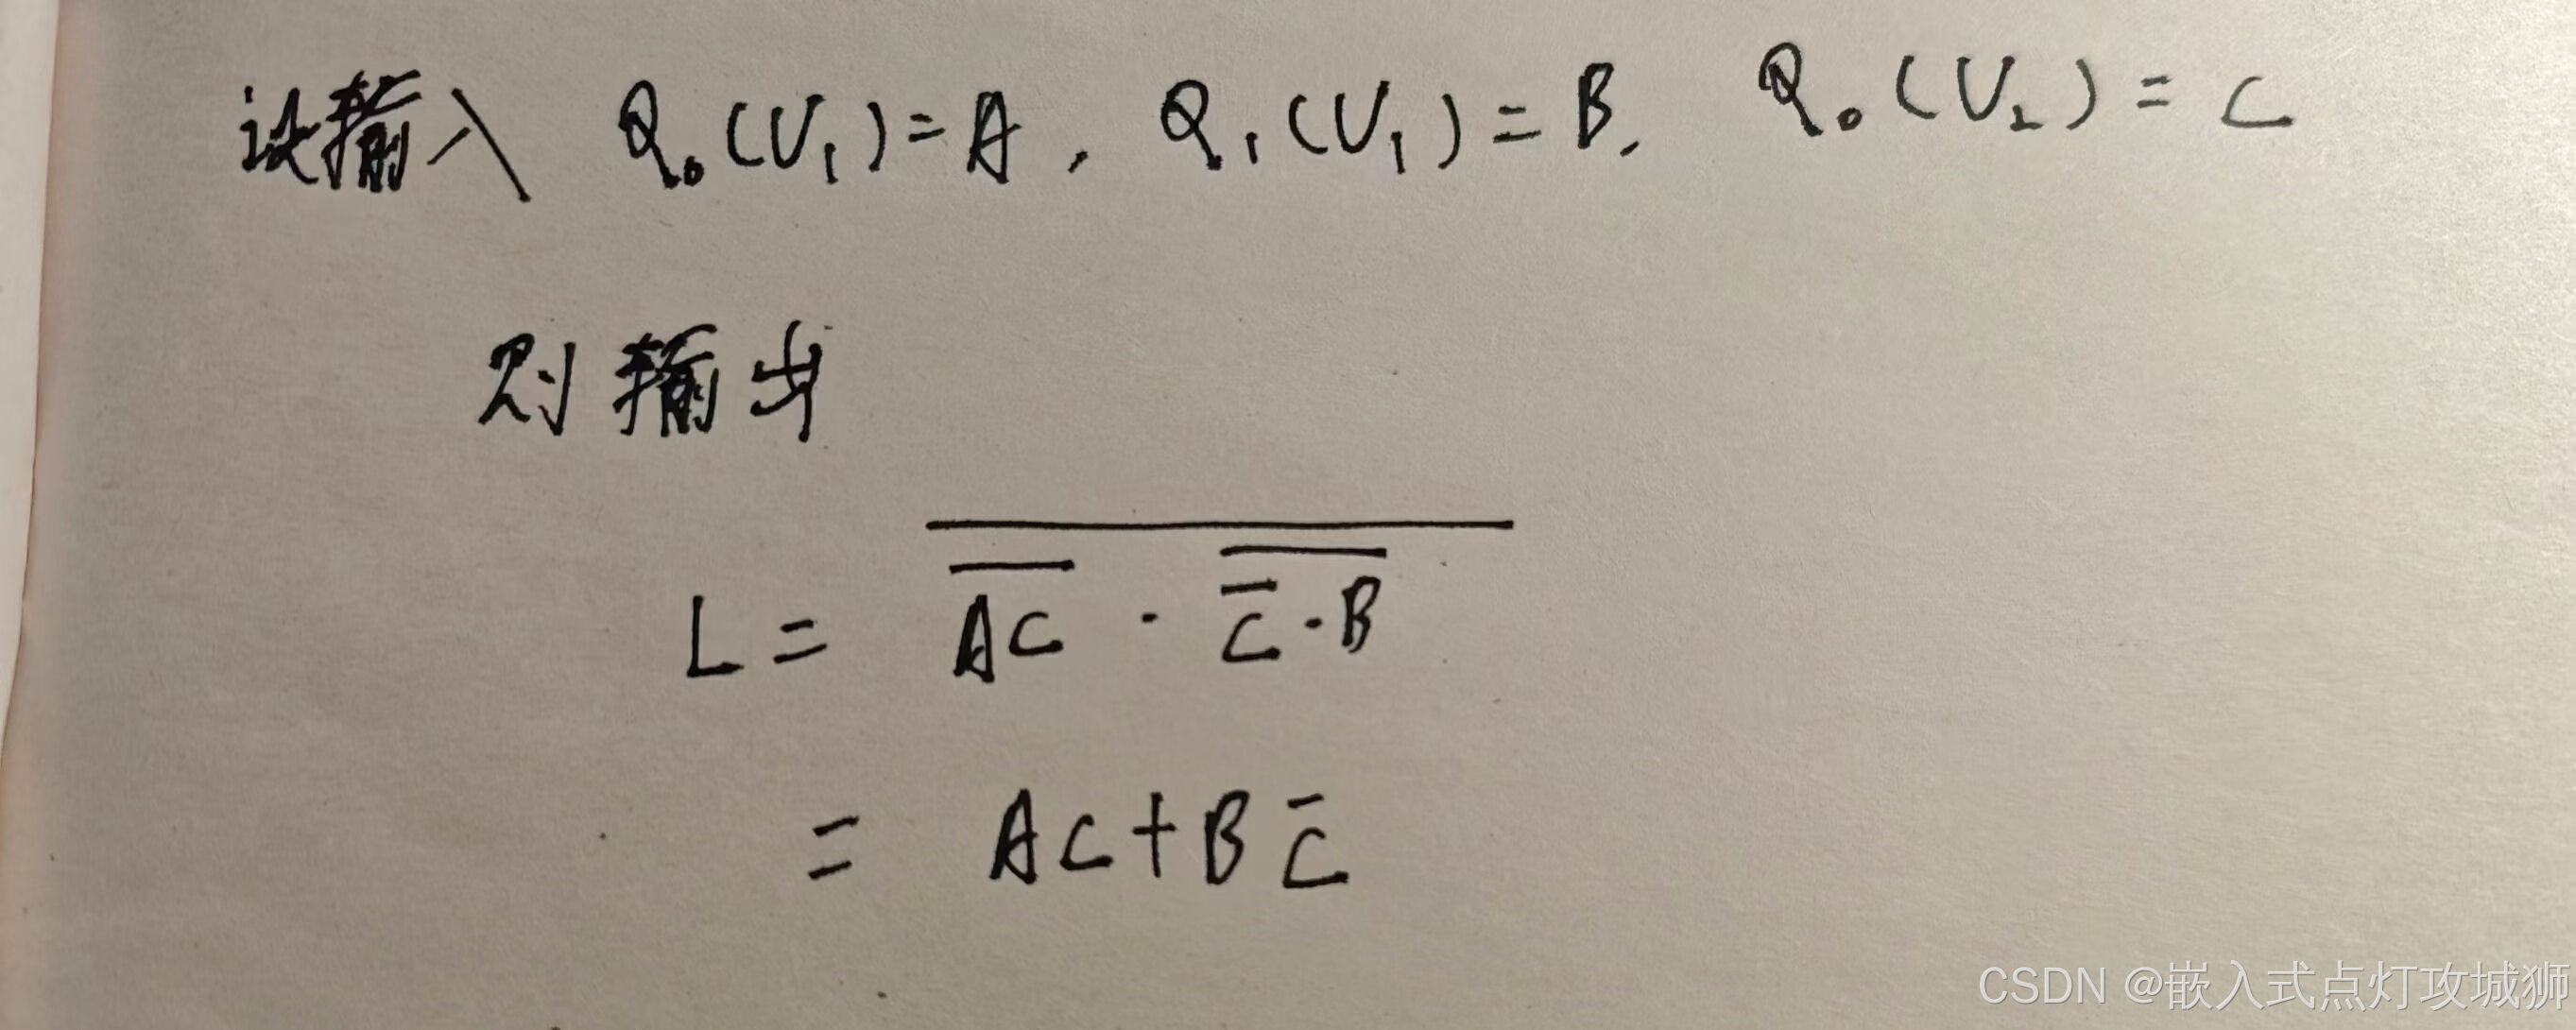 设输入 Q₀(U₁)=A, Q₁(U₁)=B, Q₀(U₂)=C
则输出
L = \overline{\overline{AC} · \overline{\overline{C}·B}}
= AC+B\overline{C}
CSDN @嵌入式点灯攻城狮